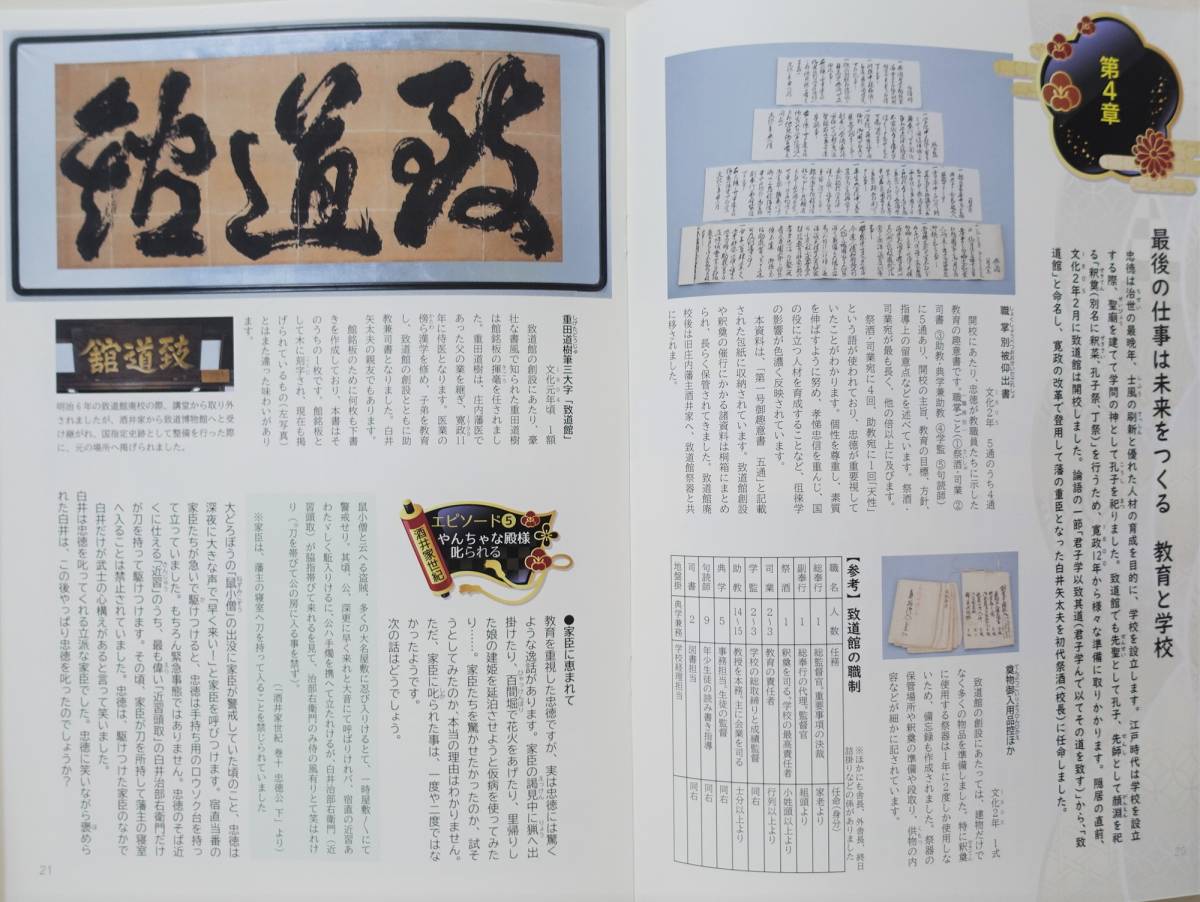 第4章
最後の仕事は未来をつくる　教育と学校
忠徳は治世の最晩年、士風の刷新と優れた人材の育成を目的に、学校を設立します。江戸時代は学校を設立
する際、聖廟を建てて学問の神として孔子を祀りました。致道館でも先聖として孔子、先師として顔淵を祀
る「釈奠（別名に釈菜、孔子祭、丁祭）」を行うため、寛政12年から様々な準備に取りかかります。隠居の直前、
文化2年2月に致道館は開校しました。論語の一節「君子学以致其道（君子学んで以てその道を致す）」から、「致
道館」と命名し、寛政の改革で登用して藩の重臣となった白井矢太夫を初代祭酒（校長）に任命しました。
職掌別被仰出書
文化2年　5通のうち4通
開校にあたり、忠徳が教職員たちに示した
教育の趣意書です。職掌ごと（①祭酒・司業 ②
司書 ③助教・典学兼助教 ④学監 ⑤句読師）
に5通あり、開校の主旨、教育の目標、方針、
指導上の留意点などを述べています。祭酒・
司業宛が最も長く、他の倍以上に及びます。
祭酒・司業宛に4回、助教宛に1回「天性」
という語が使われており、忠徳が重要視して
いたことがわかります。個性を尊重し、素質
を伸ばすように努め、孝悌忠信を重んじ、国
の役に立つ人材を育成することなど、徂徠学
の影響が色濃く反映されています。
本資料は、「第一号御趣意書　五通」と記載
された包紙に収納されています。致道館創設
や釈奠の催行にかかる諸資料は桐箱にまとめ
られ、長らく保管されてきました。致道館廃
校後は旧庄内藩主酒井家へ、致道館祭器と共
に移されました。
奠物御入用品控ほか
文化2年　1式
致道館の創設にあたっては、建物だけで
なく多くの物品を準備しました。特に釈奠
に使用する祭器は1年に2度しか使用しな
いため、備忘録も作成されました。祭器の
保管場所や釈奠の準備や段取り、供物の内
容などが細かに記されています。
【参考】致道館の職制
※ほかにも舎長、外舎長、終日
詰掛りなどの係がありました
職名　人数　任務　任命（身分）
総奉行　1　総監督官、重要事項の決裁　家老より
副奉行　1　総奉行の代理、監督官　組頭より
祭酒　1　釈奠を司る、学校の最高責任者　小姓頭以上より
司業　2〜3　教育の責任者　行列以上より
学監　2〜3　学校の総取締りと成績監督　同右
助教　14〜15　教授を本務、主に会業を司る　士分以上より
典学　5　事務担当、生徒の監督　同右
句読師　9　年少生徒の読み書き指導　同右
司書　2　図書担当　同右
地盤掛　典学兼務　学校経理担当
20
致道館
重田道樹筆三大字「致道館」
文化元年頃　1額
致道館の創設にあたり、豪
壮な書風で知られた重田道樹
は館銘板の揮毫を任されまし
た。重田道樹は、庄内藩医で
あった父の業を継ぎ、寛政11
年に侍医となります。医業の
傍ら漢学を修め、子弟を教育
し、致道館の創設とともに助
教兼司書となりました。白井
矢太夫の親友でもあります。
館銘板のために何枚も下書
きを作成しており、本書はそ
のうちの1枚です。館銘板と
して木に刻字され、現在も掲
げられているもの（左写真）
とはまた違った味わいがあり
ます。
致道館
明治6年の致道館廃校の際、講堂から取り外
されましたが、酒井家から致道博物館へと受
け継がれ、国指定史跡として整備を行った際
に、元の場所へ掲げられました。
酒井家世紀
エピソード❺
やんちゃな殿様
叱られる
●家臣に恵まれて
教育を重視した忠徳ですが、実は忠徳には驚く
ような逸話があります。家臣の謁見中に猟へ出
掛けたり、百間堀で花火をあげたり、里帰りし
た娘の建姫を延泊させようと仮病を使ってみた
り……。家臣たちを驚かせたかったのか、試そ
うとしてみたのか、本当の理由はわかりません。
ただ、家臣に叱られた事は、一度や二度ではな
かったようです。
次の話はどうでしょう。
鼠小僧と云へる盗賊、多くの大名屋敷に忍び入りけるとて、一時屋敷〱にて
警戒せり。其頃、公、深更に早く来れと大音にて呼ばりけれハ、宿直の近習あ
わたゝしく駈入りけるに、公ハ手燭を携へて立たれけるが、白井治部右衛門（近
習頭取）が脇指帯びて来れるを見て、治部右衛門のみ侍の風有りとて笑はれけ
り（※刀を帯びて公の房に入る事を禁ず）。
（『酒井家世紀 巻十 忠徳公 下』より）
※家臣は、藩主の寝室へ刀を持って入ることを禁じられていました
大どろぼうの「鼠小僧」の出没に家臣が警戒していた頃のこと、忠徳は
深夜に大きな声で「早く来い！」と家臣を呼びつけます。宿直当番の
家臣たちが急いで駆けつけると、忠徳は手持ち用のロウソク台を持っ
て立っていました。もちろん緊急事態ではありません。忠徳のそば近
くに仕える「近習」のうち、最も偉い「近習頭取」の白井治部右衛門だけ
が刀を持って駆けつけます。その頃、家臣が刀を所持して藩主の寝室
へ入ることは禁止されていました。忠徳は、駆けつけた家臣のなかで
白井だけが武士の心構えがあると言って笑いました。
白井は忠徳を叱ってくれる立派な家臣でした。忠徳に笑いながら褒めら
れた白井は、この後やっぱり忠徳を叱ったのでしょうか？
21